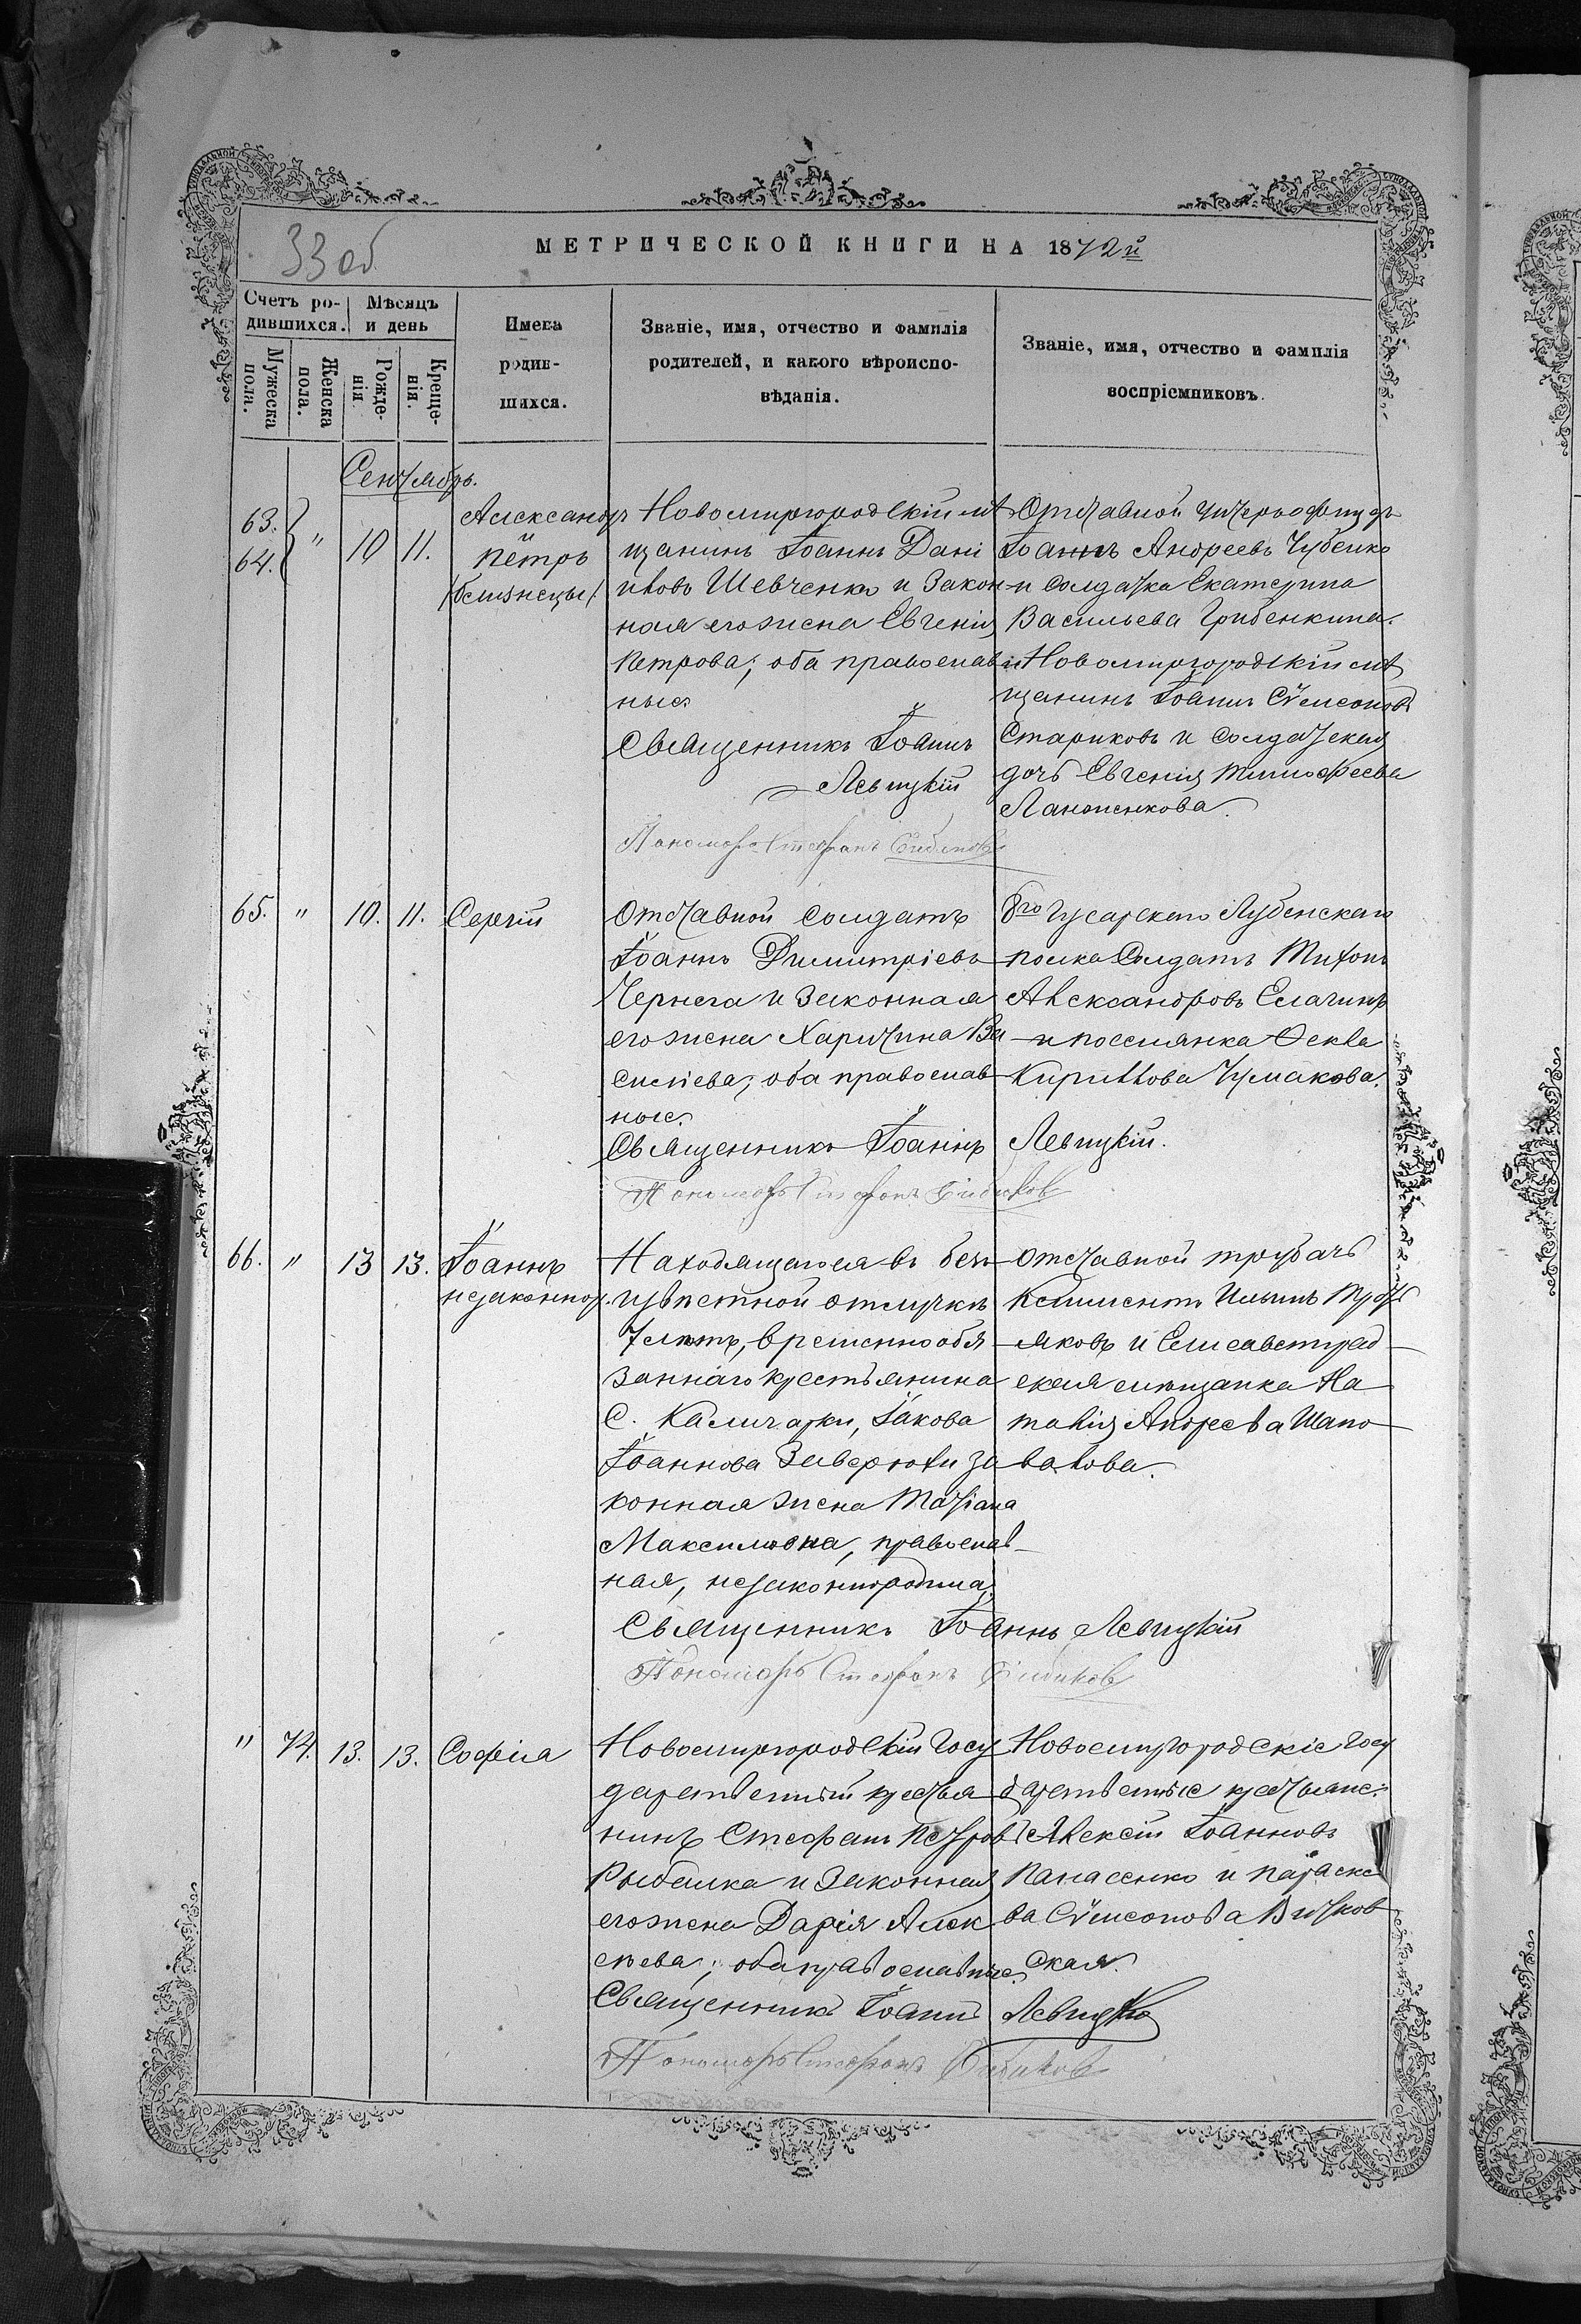 33 об
МЕТРИЧЕСКОЙ КНИГИ НА 1872й
Счетъ ро-
дившихся.
Мѣсяцъ
и день
Мужеска
пола.
Женска
пола.
Рожде-
нія
Креще-
нія.
Имена
родив-
шихся.
Званіе, имя, отчество и фамилія
родителей, и какого вѣроиспо-
вѣданія.
Званіе, имя, отчество и фамилія
воспріемниковъ.
Сентябрь.
63.
64.
"
10
11.
Александръ
Петръ
/близнецы/
Новомиргородскій мѣ
щанинъ Іоаннъ Дані
иловъ Шевченко и закон
ная его жена Евгенія
Петрова; оба православ
ные.
Священникъ Іоаннъ
Левицкій
Пономарь Стефанъ Бибиковъ
Отставной Унтерофицеръ
Іоаннъ Андреевъ Чубенко
и солдатка Екатерина
Васильева Грибенкина.
и Новомиргородскій мѣ
щанинъ Іоаннъ Сѵмеоновъ
Стариковъ и солдатская
дочь Евгенія Тимофеева
65.
"
10.
11.
Сергій
Отставной солдатъ
Іоаннъ Димитріевъ
Чернега и законная
его жена Харитина Ва
силіева; оба православ
ные.
Священникъ Іоаннъ Левицкій.
Пономарь Стефанъ Бибиковъ
8го Гусарскаго Лубенскаго
полка Солдатъ Тихонъ
Александровъ Елагинъ
и поселянка Фекла
Кириллова Чумакова.
66.
"
13
13.
Іоаннъ
незаконнор.
Находящагося въ без
извѣстной отлучкѣ
7 лѣтъ, временно обя
заннаго крестьянина
с. Камчатки, Іакова
Іоаннова Заверюхи за
конная жена Татіана
Максимовна, православ
ная, незаконнородила.
Священникъ Іоаннъ Левицкій
Пономарь Стефанъ Бибиковъ
Отставной трубачъ
Климентъ Ильинъ Трет
яковъ и Елисаветград
ская мѣщанка На
талія Андреева Шапо
валова.
"
74.
13.
13.
Софіа
Новомиргородскій Госу
дарственный крестья
нинъ Стефанъ Петровъ
Рыбалка и законная
его жена Дарія Алек
сѣева; оба православные.
Священникъ Іоаннъ Левицкій
Пономарь Стефанъ Бибиковъ
Новомиргородскіе Госу
дарственные крестьяне:
Алексій Іоанновъ
Панасенко и Параске
ва Сѵмеонова Витков
ская.